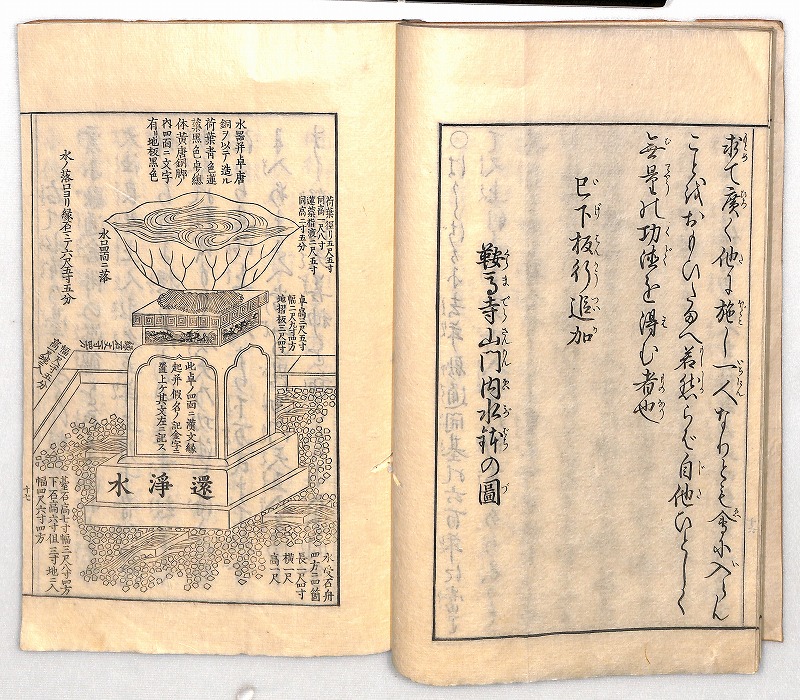 求て廣く他に施し一人なりとも會に入しめん
ことをおもひたまへ若然らば自他ひとしく
無量の功徳を得む者也
已下板行追加
鞍馬寺山門内水鉢の圖
水器并卓唐
銅ヲ以テ造ル
荷葉青色蓮
蘂黒色卓ノ總
体黄唐銅脚ノ
内四面ニ文字
有リ地板黒色
荷葉徑リ五尺五寸
同高一尺八寸
同高二寸五分
卓高二尺五寸
幅二尺九寸四方
地摺板三尺四寸
水口四面ニ落
水ノ落口ヨリ縁石ニテ六尺五寸五分
此卓ノ四面ニ漢文縁
起并假名ノ記金字ニ
置上ケ其文左ニ記ス
還淨水
臺石高七寸幅三尺八寸四方
下石高六寸但三寸地ニ入
幅四尺六寸四方
水受石舟
四方ニ四箇
長一尺四寸
横一尺
高一尺